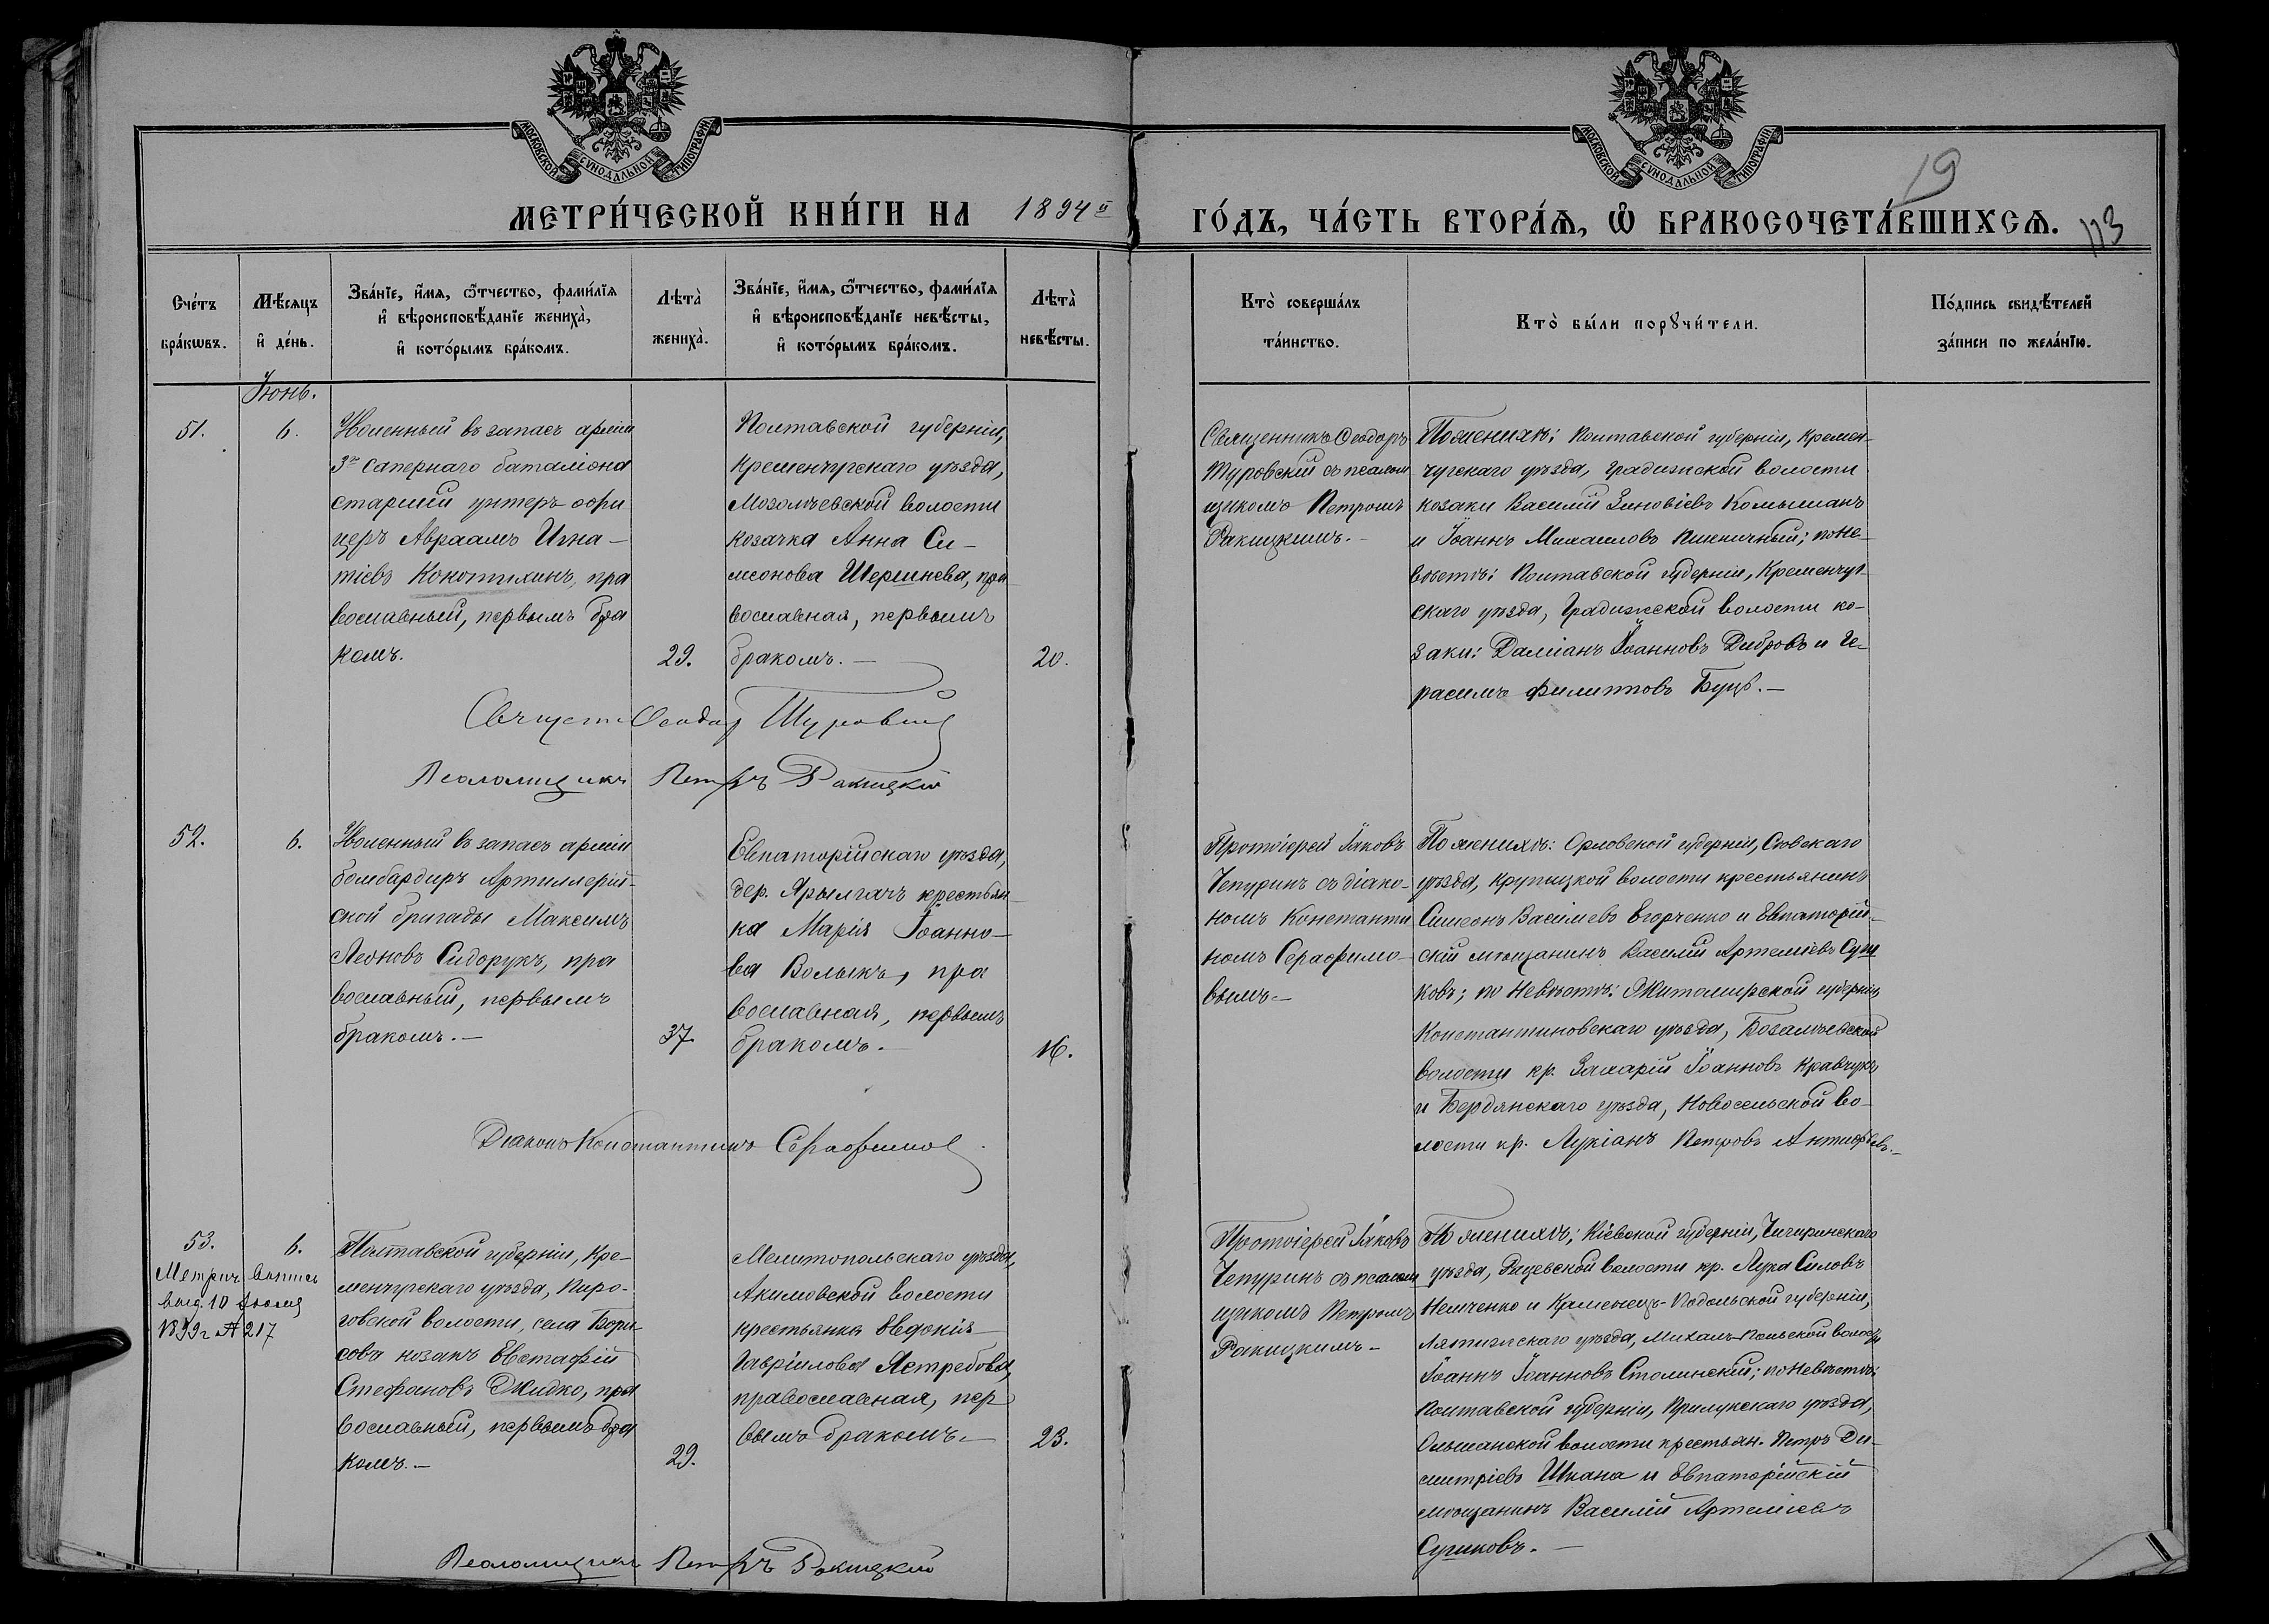 МОСКОВСКОЙ СѴНОДАЛЬНОЙ ТИПОГРАФІИ
МОСКОВСКОЙ СѴНОДАЛЬНОЙ ТИПОГРАФІИ
19
МЕТРИ́ЧЕСКОЙ КНИ́ГИ НА 1894й ГО́ДЪ, ЧА́СТЬ ВТОРА́Ѧ, Ѽ БРАКОСОЧЕТА́ВШИХСѦ.
113
Сче́тъ
бра́кѡвъ.
Мѣ́сяцъ
и҆ де́нь.
Зва́нїе, и҆́мѧ, ѻ҆́тчество, фами́лїѧ
и҆ вѣроисповѣ́данїе жениха̀,
и҆ кото́рымъ бра́комъ.
Лѣта̀
жениха̀.
Зва́нїе, и҆́мѧ, ѻ҆́тчество, фами́лїѧ
и҆ вѣроисповѣ́данїе невѣ́сты,
и҆ кото́рымъ бра́комъ.
Лѣта̀
невѣ́сты.
Кто̀ соверша́лъ
та́инство.
Кто̀ бы́ли порꙋчи́тели.
По́дпись свидѣ́телей
за́писи по жела́нїю.
Іюнь.
51.
6.
Уволенный въ запасъ арміи
3го Сапернаго баталіона
старшій унтеръ-офи
церъ Авраамъ Игна-
тіевъ Конотихинъ, пра
вославный, первымъ бра
комъ.
29.
Полтавской губерніи,
Кременчугскаго уѣзда,
волости
козачка Анна Си-
меонова Шершнева, пра
вославная, первымъ
бракомъ.—
20.
Священникъ Ѳеодоръ
Туровскій съ псалом
щикомъ Петромъ
Ракицкимъ.—
По женихѣ: Полтавской губерніи, Кремен-
чугскаго уѣзда, Градижской волости
козаки Василій Зиновіевъ Комышанъ
и Іоаннъ Михаиловъ Пшеничный; по не-
вѣстѣ: Полтавской губерніи, Кременчуг-
скаго уѣзда, Градижской волости ко-
заки: Даміанъ Іоанновъ Дибровъ и Ге-
расимъ Филипповъ Буцъ.—
Ѳеодор Туровскій
Псаломщикъ Петръ Ракицкій
52.
6.
Уволенный въ запасъ арміи
бомбардиръ Артиллерій-
ской бригады Максимъ
Леоновъ Сидорукъ, пра
вославный, первымъ
бракомъ.—
37.
Евпаторійскаго уѣзда,
дер. Ярылгачъ крестьян-
ка Марія Іоанно-
ва Волыкъ, пра
вославная, первымъ
бракомъ.—
16.
Протоіерей Іаковъ
Чепуринъ съ діако-
номъ Константи
номъ Серафимо-
вымъ.—
По женихѣ: Орловской губерніи, Сѣвскаго
уѣзда, Крупицкой волости крестьянинъ
Симеонъ Василіевъ Егорченко и Евпаторій-
скій мѣщанинъ Василій Артеміевъ Суш
ковъ; по невѣстѣ: Житомирской губерніи,
Константиновскаго уѣзда,
волости кр. Захарій Іоанновъ Кравчукъ
и Бердянскаго уѣзда, Новосельской во-
лости кр. Лукіанъ Петровъ Антиофьевъ.—
Діаконъ Константинъ Серафимов
53.
6.
Метрич. выпись
выд. 10 Іюля
1899 г. № 217
Полтавской губерніи, Кре-
менчугскаго уѣзда, Пиро-
говской волости, села Бори-
сова козакъ Евстафій
Стефановъ Жидко, пра
вославный, первымъ бра
комъ.—
29.
Мелитопольскаго уѣзда,
Акимовской волости
крестьянка Евдокія
Гавріилова Ястребова,
православная, пер
вымъ бракомъ.—
23.
Протоіерей Іаковъ
Чепуринъ съ псалом
щикомъ Петромъ
Ракицкимъ.—
По женихѣ; Кіевской губерніи, Чигиринскаго
уѣзда, Рацевской волости кр. Лука Силовъ
Немченко и Каменецъ-Подольской губерніи,
уѣзда, Михалъ-Польской волости
Іоаннъ Іоанновъ Столинскій; по невѣстѣ:
Полтавской губерніи, Прилукскаго уѣзда,
Ольшанской волости крестьян. Петръ Ди-
митріевъ Шпана и Евпаторійскій
мѣщанинъ Василій Артеміевъ
Сушковъ.—
Псаломщикъ Петръ Ракицкій